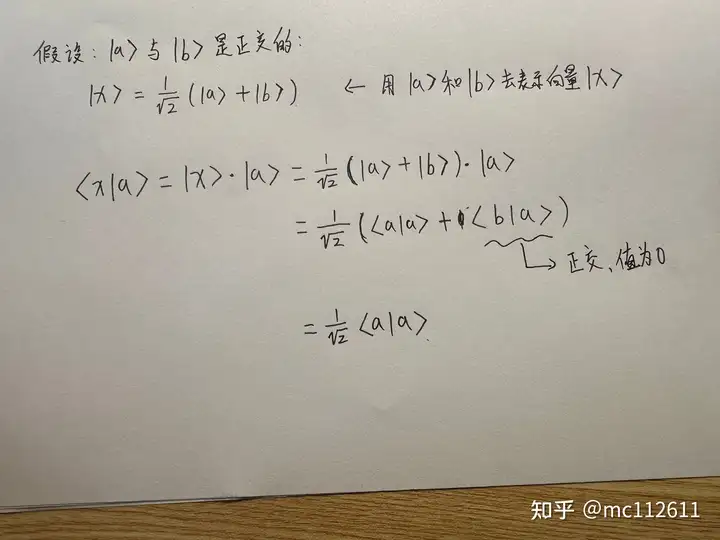 假设: |a> 与 |b> 是正交的:
|x> = 1/√2 (|a> + |b>) ← 用 |a> 和 |b> 去表示向量 |x>
<x|a> = |x>·|a> = 1/√2 (|a> + |b>)·|a>
= 1/√2 (<a|a> + <b|a>)
→ 正交、值为0
= 1/√2 <a|a>
知乎 @mc112611